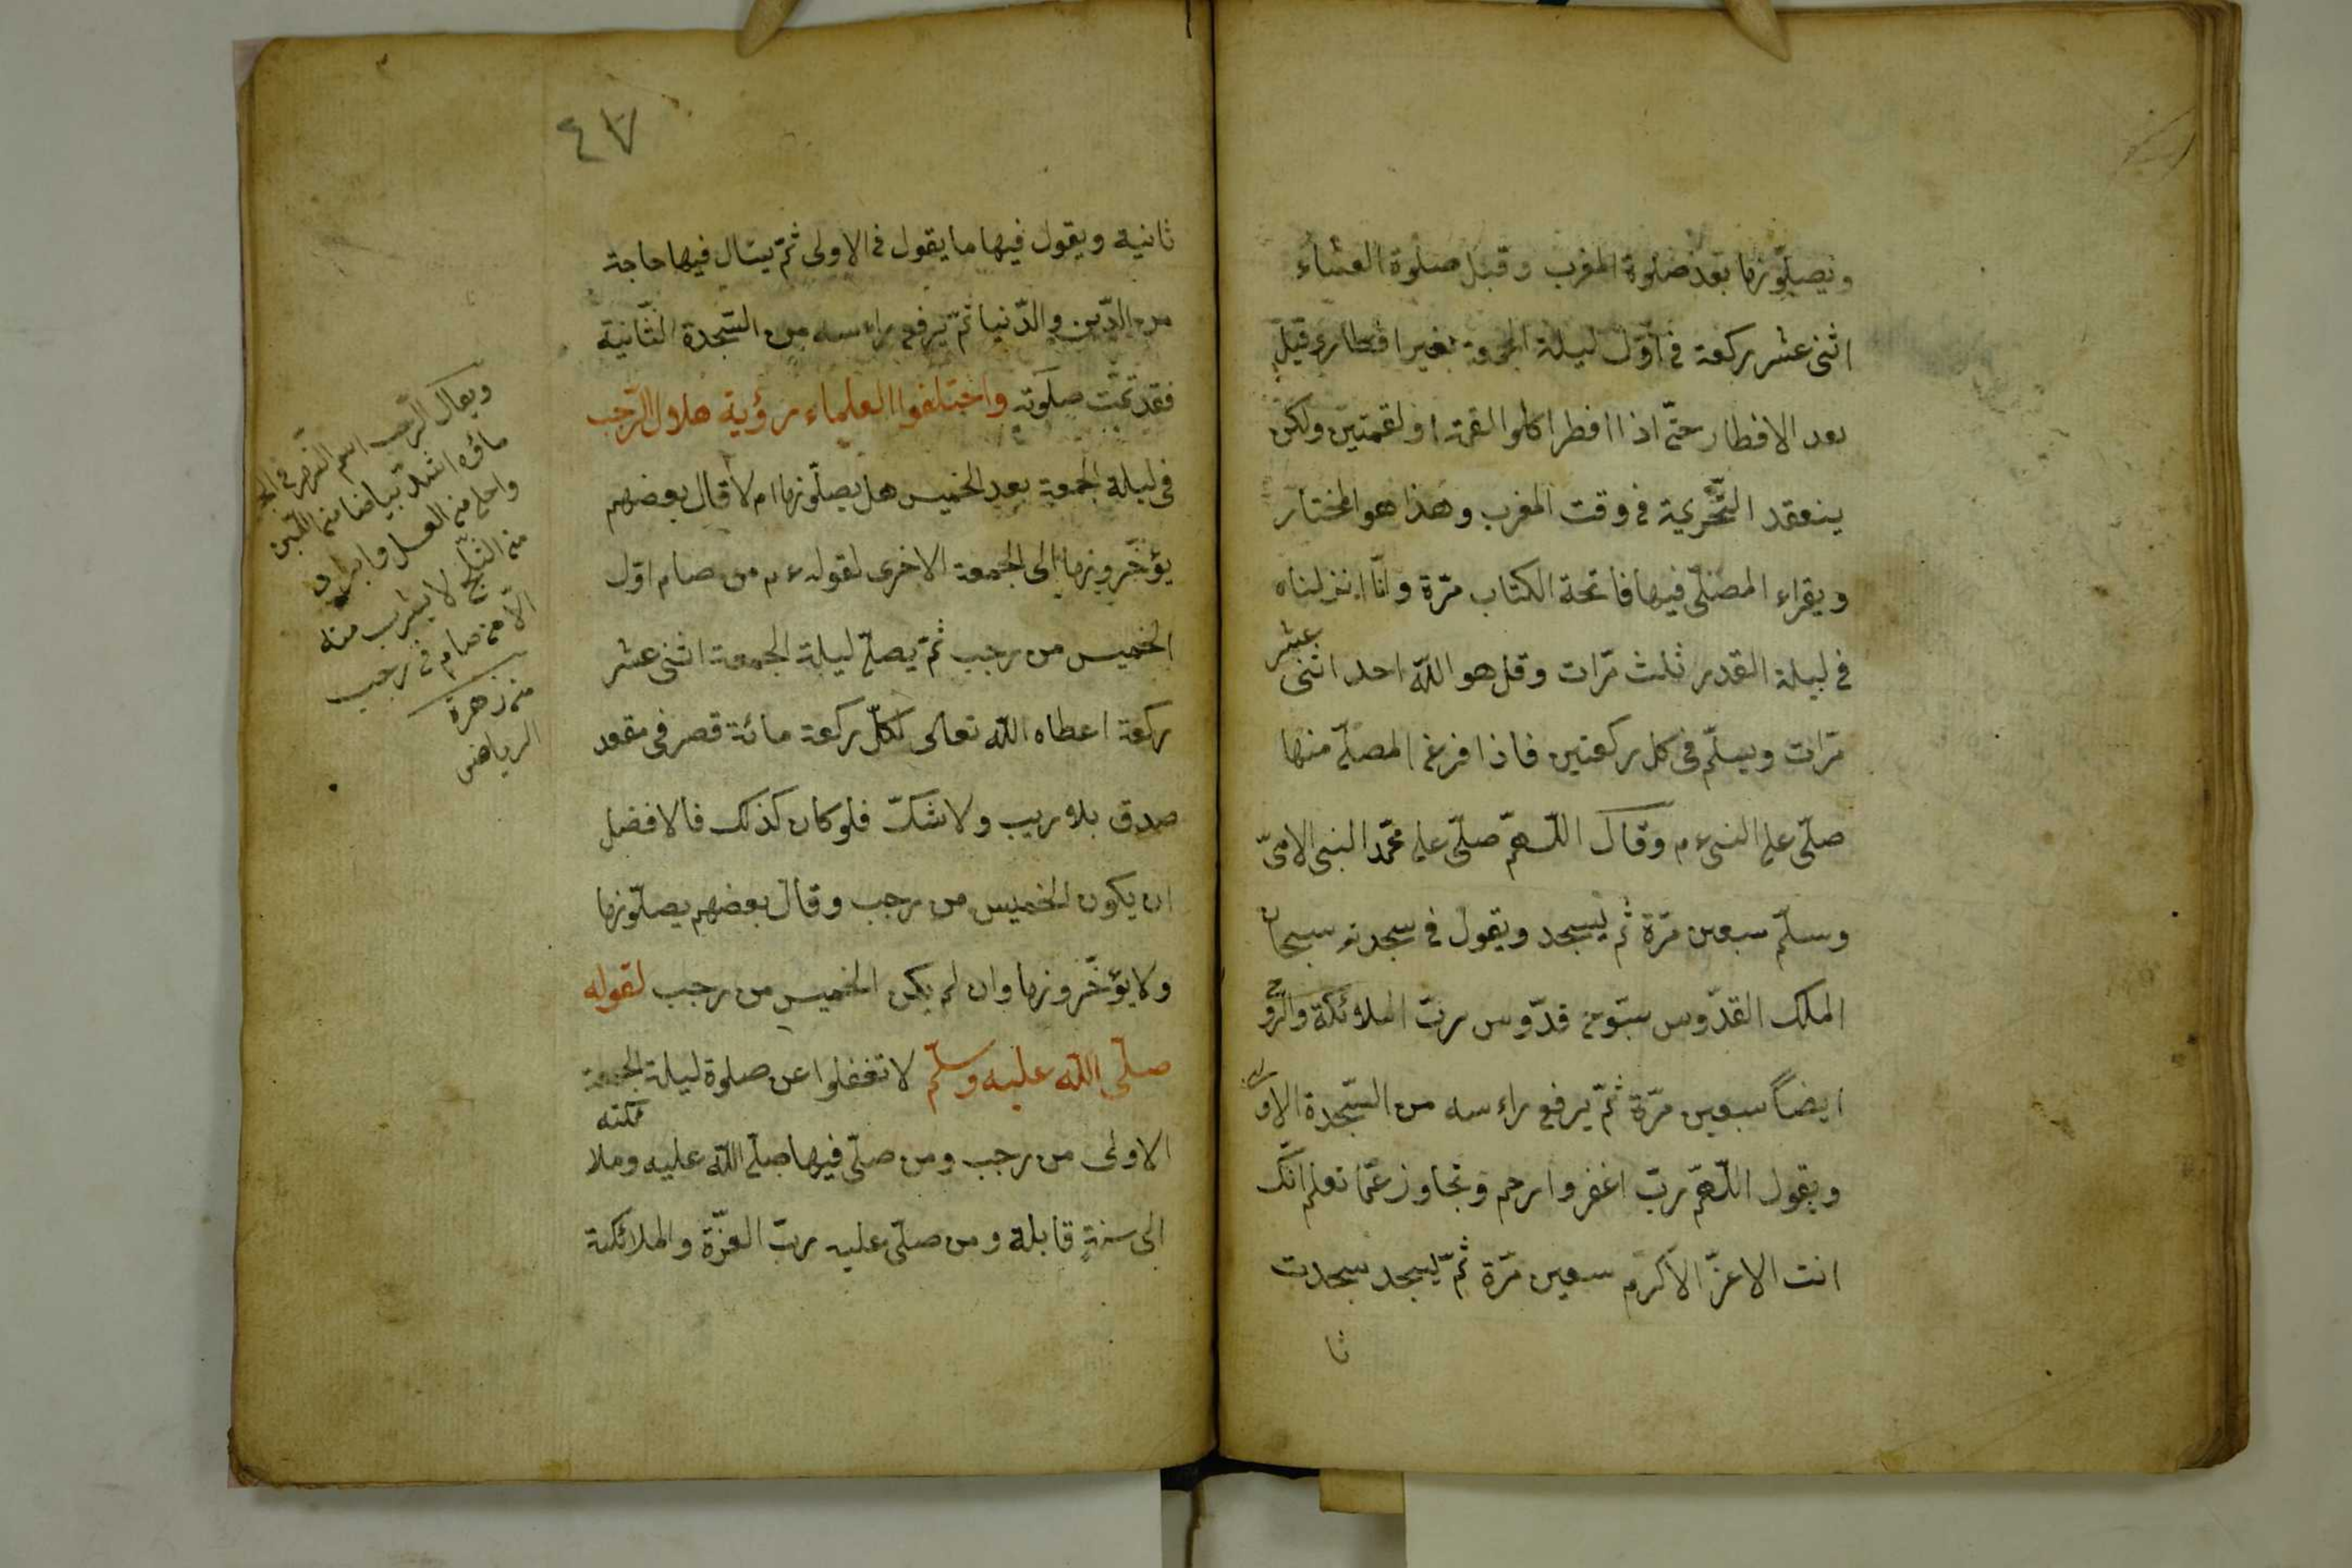 ويصلّونها بعد صلوة المغرب وقبل صلوة العشاء
اثنى عشر ركعة فى اوّل ليلة الجمعة بغير افطار وقيل
بعد الافطار حتّى اذا افطر اكلوا لقمة او لقمتين ولكن
ينعقد التّحريمة فى وقت المغرب وهذا هو المختار
ويقراء المصلّى فيها فاتحة الكتاب مرّة وانّا انزلناه
فى ليلة القدر ثلث مرّات وقل هو اللّه احد اثنى عشر
مرّات ويسلّم فى كل ركعتين فاذا فرغ المصلّى منها
صلّى على النبى ءم وقال اللّهمّ صلّى على محمّد النبى الامىّ
وسلّم سبعين مرّة ثم يسجد ويقول فى سجدته سبحان
الملك القدّوس سبّوح قدّوس ربّ الملائكة والرّوح
ايضاً سبعين مرّة ثمّ يرفع راءسه من السّجدة الاولى
ويقول اللّهمّ ربّ اغفر وارحم وتجاوز عمّا تعلم انّك
انت الاعزّ الاكرم سبعين مرّة ثمّ يسجد سجدت
ثا
٤٧
ثانية ويقول فيها ما يقول فى الاولى ثمّ يسٔال فيها حاجة
من الدّين والدّنيا ثمّ يرفع راءسه من السّجدة الثّانية
فقد تمّت صلوته واختلفوا العلماء رؤية هلال الرّجب
فى ليلة الجمعة بعد الخميس هل يصلّونها ام لا قال بعضهم
يؤخّرونها الى الجمعة الاخرى لقوله ءم من صام اوّل
الخميس من رجب ثمّ يصلّى ليلة الجمعة اثنى عشر
ركعة اعطاه اللّه تعالى لكلّ ركعة مائة قصر فى مقعد
صدق بلا ريب ولا شكّ فلو كان كذلك فالافضل
ان يكون الخميس من رجب وقال بعضهم يصلّونها
ولا يؤخّرونها وان لم يكن الخميس من رجب لقوله
صلّى اللّه عليه وسلّم لا تغفلوا عن صلوة ليلة الجمعة
الاولى من رجب ومن صلّى فيها صلّى اللّه عليه وملائكته
الى سنةٍ قابلة ومن صلّى عليه ربّ العزّة والملائكة
ويقال الرّجب اسم النهر فى
ماؤه اشدّ بياضا من اللّبن
واحلى من العسل وابرد
من الثّلج لا يشرب منه
الّا من صام فى رجب
من زهرة
الرياض